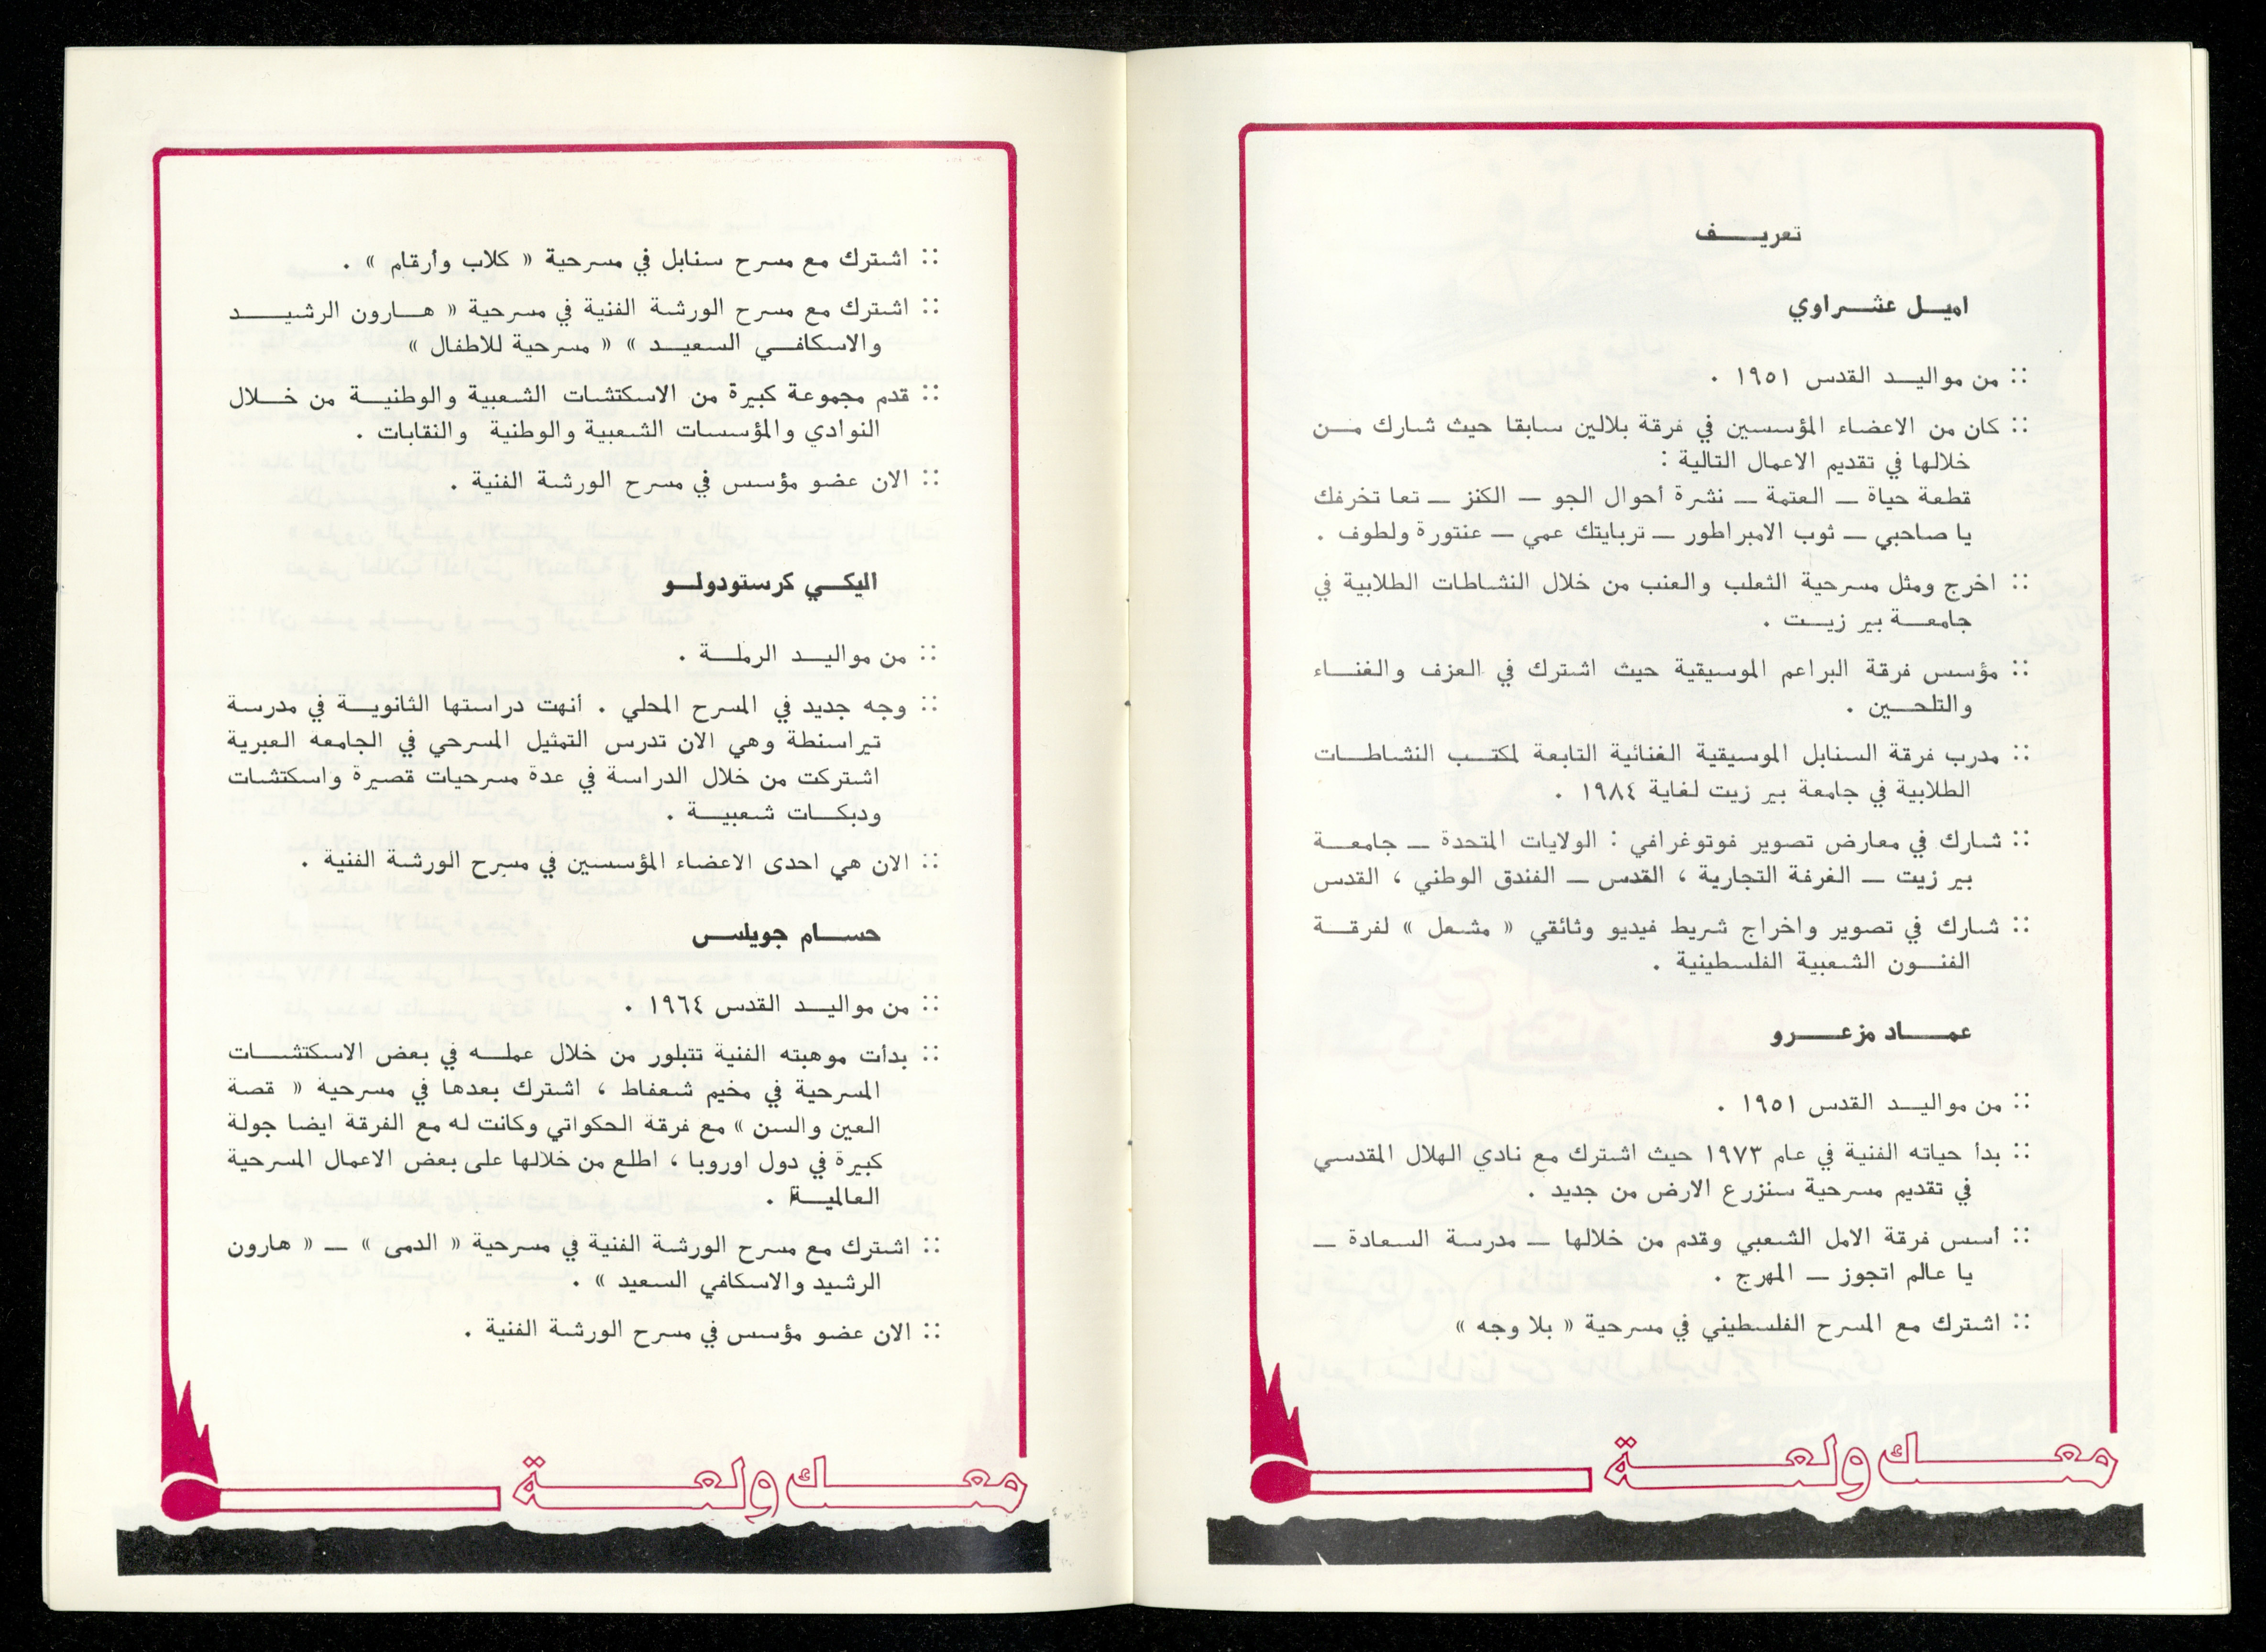 تعريـــف
اميـل عشـراوي
:: من مواليـد القدس ١٩٥١ .
:: كان من الاعضاء المؤسسين في فرقة بلالين سابقا حيث شارك مـن
خلالها في تقديم الاعمال التالية :
قطعة حياة ــ العتمة ــ نشرة أحوال الجو ــ الكنز ــ تعا تخرفك
يا صاحبي ــ ثوب الامبراطور ــ تربايتك عمي ــ عنتورة ولطوف .
:: اخرج ومثل مسرحية الثعلب والعنب من خلال النشاطات الطلابية في
جامعـة بير زيـت .
:: مؤسس فرقة البراعم الموسيقية حيث اشترك في العزف والغنـاء
والتلحـين .
:: مدرب فرقة السنابل الموسيقية الغنائية التابعة لمكتـب النشاطـات
الطلابية في جامعة بير زيت لغاية ١٩٨٤ .
:: شارك في معارض تصوير فوتوغرافي : الولايات المتحدة ــ جامعـة
بير زيت ــ الغرفة التجارية ، القدس ــ الفندق الوطني ، القدس
:: شارك في تصوير واخراج شريط فيديو وثائقي « مشعل » لفرقـة
الفنـون الشعبية الفلسطينية .
عمــاد مزعــرو
:: من مواليـد القدس ١٩٥١ .
:: بدأ حياته الفنية في عام ١٩٧٣ حيث اشترك مع نادي الهلال المقدسي
في تقديم مسرحية سنزرع الارض من جديد .
:: أسس فرقة الامل الشعبي وقدم من خلالها ــ مدرسة السعادة ــ
يا عالم اتجوز ــ المهرج .
:: اشترك مع المسرح الفلسطيني في مسرحية « بلا وجه »
معــك ولعــة
:: اشترك مع مسرح سنابل في مسرحية « كلاب وأرقام » .
:: اشترك مع مسرح الورشة الفنية في مسرحية « هـارون الرشيــد
والاسكافـي السعيـد » « مسرحية للاطفال »
:: قدم مجموعة كبيرة من الاسكتشات الشعبية والوطنيـة من خـلال
النوادي والمؤسسات الشعبية والوطنية والنقابات .
:: الان عضو مؤسس في مسرح الورشة الفنية .
اليكـي كرستودولـو
:: من مواليـد الرملـة .
:: وجه جديد في المسرح المحلي . أنهت دراستها الثانويـة في مدرسة
تيراسنطة وهي الان تدرس التمثيل المسرحي في الجامعة العبرية
اشتركت من خلال الدراسة في عدة مسرحيات قصيرة واسكتشات
ودبكـات شعبيـة .
:: الان هي احدى الاعضاء المؤسسين في مسرح الورشة الفنية .
حسـام جويلـس
:: من مواليـد القدس ١٩٦٤ .
:: بدأت موهبته الفنية تتبلور من خلال عملـه في بعض الاسكتشـات
المسرحية في مخيم شعفاط ، اشترك بعدها في مسرحية « قصة
العين والسن » مع فرقة الحكواتي وكانت له مع الفرقة ايضا جولة
كبيرة في دول اوروبا ، اطلع من خلالها على بعض الاعمال المسرحية
العالميـة .
:: اشترك مع مسرح الورشة الفنية في مسرحية « الدمى » ــ « هارون
الرشيد والاسكافي السعيد » .
:: الان عضو مؤسس في مسرح الورشة الفنية .
معــك ولعــة